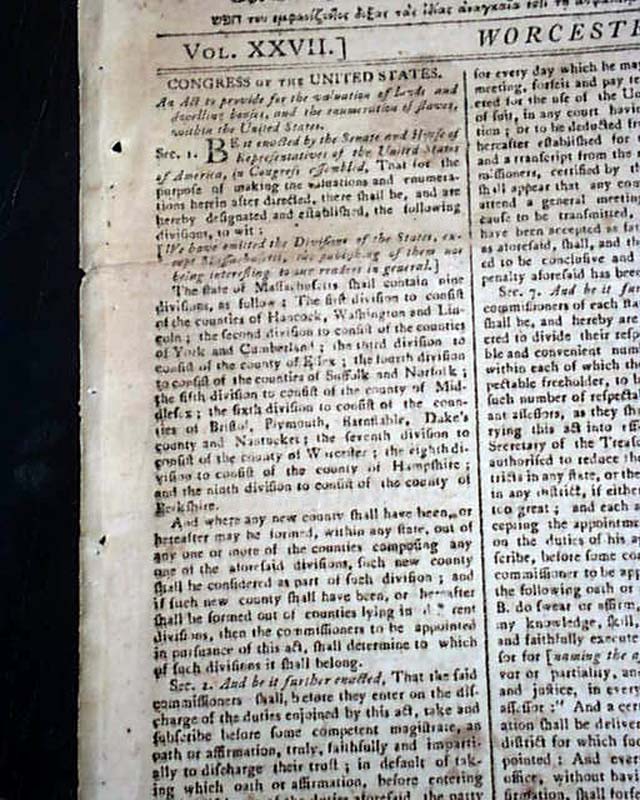 VOL. XXVII.]
WORCESTE
CONGRESS OF THE UNITED STATES.
An Act to provide for the valuation of Lands and
dwelling houses, and the enumeration of slaves,
within the United States.
Sec. 1. BE it enacted by the Senate and House of
Representatives of the United States
of America, in Congress assembled, That for the
purpose of making the valuations and enumera-
tions herein after directed, there shall be, and are
hereby designated and established, the following
divisions, to wit :
[We have omitted the Divisions of the States, ex-
cept Massachusetts, the publishing of them not
being interesting to our readers in general.]
The state of Massachusetts shall contain nine
divisions, as follow ; The first division to consist
of the counties of Hancock, Washington and Lin-
coln ; the second division to consist of the counties
of York and Cumberland ; the third division to
consist of the county of Essex ; the fourth division
to consist of the counties of Suffolk and Norfolk ;
the fifth division to consist of the county of Mid-
dlesex ; the sixth division to consist of the coun-
ties of Bristol, Plymouth, Barnstable, Duke's
county and Nantucket ; the seventh division to
consist of the county of Worcester ; the eighth di-
vision to consist of the county of Hampshire ;
and the ninth division to consist of the county of
Berkshire.
And where any new county shall have been, or
hereafter may be formed, within any state, out of
any one or more of the counties composing any
one of the aforesaid divisions, such new county
shall be considered as part of such division ; and
if such new county shall have been, or hereafter
shall be formed out of counties lying in rent
divisions, then the commissioners to be appointed
in pursuance of this act, shall determine to which
of such divisions it shall belong.
Sec. 2. And be it further enacted, That the said
commissioners shall, before they enter on the dis-
charge of the duties enjoined by this act, take and
subscribe before some competent magistrate, an
oath or affirmation, truly, faithfully and imparti-
ally to discharge their trust ; in default of tak-
ing which oath or affirmation, before entering
of the duties aforesaid, the party
for every day which he may
meeting, forfeit and pay t
ered for the use of the Un
of suit, in any court havin
tion ; or to be deducted fr
hereafter established for
and a transcript from the
missioners, certified by th
shall appear that any com
attend a general meeting
cause to be transmitted,
have been accepted as fa
as aforesaid, shall, and th
ed to be conclusive and
penalty aforesaid has been
Sec. 7. And be it fur
commissioners of each sta
shall be, and hereby are
ered to divide their resp
ble and convenient num
within each of which th
pectable freeholder, to b
such number of respecta
ant assessors, as they sh
rying this act into effe
Secretary of the Treasu
authorised to reduce th
tricts in any state, or the
in any district, if eithe
too great ; and each a
cepting the appointme
on the duties of his ap
scribe, before some co
commissioner to be app
the following oath or
B. do swear or affirm,
my knowledge, skill,
and faithfully execute
sor for [naming the a
vor or partiality, an
and justice, in every
assessor :" And a cert
ation shall be deliver
district for which such
pointed : And every
office, without hav
firmation, shall forf